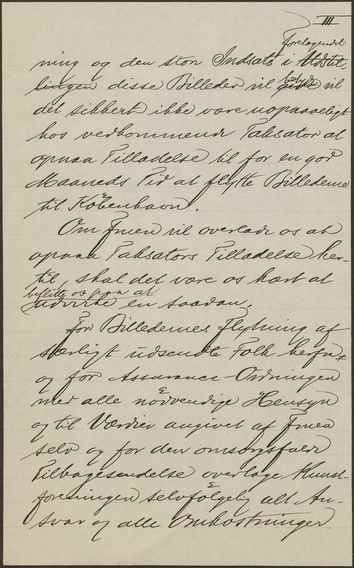 III
Foretagendet
ning og den store Indsats i Udstil-
lingen disse Billeder vil betyde vil
det sikkert ikke være uopnaaeligt
hos vedkommende Taksator at
opnaa Tilladelse til for en god
Maaneds Tid at flytte Billederne
til København.
Om Fruen vil overlade os at
opnaa Taksators Tilladelse her-
til skal det være os kært at
udvirke en saadan.
For Billedernes Flytning af
særligt udsendte Folk herfra
og for Assurance-Ordningen
med alle nødvendige Hensyn
og til Værdier angivet af Fruen
selv og for den omsorgsfulde
Tilbagesendelse overtage Kunst-
foreningen selvfølgelig alt An-
svar og alle Omkostninger.